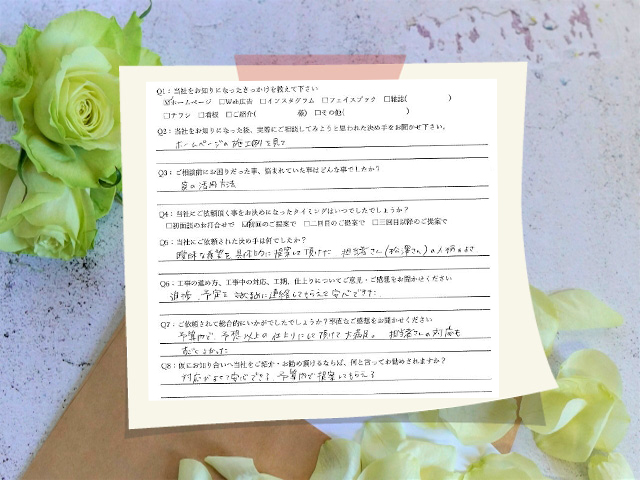 Q1：当社をお知りになったきっかけを教えて下さい
☑ホームページ □Web広告 □インスタグラム □フェイスブック □雑誌( )
□チラシ □看板 □ご紹介( 様) □その他( )
Q2：当社をお知りになった後、実際にご相談してみようと思われた決め手をお聞かせ下さい。
ホームページの施工例を見て
Q3：ご相談前にお困りだった事、悩まれていた事はどんな事でしたか？
の活用方法
Q4：当社にご依頼頂く事をお決めになったタイミングはいつでしたでしょうか？
□初面談のお打合せで ☑初回のご提案で □二回目のご提案で □三回目以降のご提案で
Q5：当社にご依頼された決め手は何でしたか？
曖昧な希望を具体的に提案して頂けた 担当者さん(松澤さん)の人柄の良さ
Q6：工事の進め方、工事中の対応、工期、仕上りについてご意見・ご感想をお聞かせください
進捗、予定を連絡してもらえて安心できた
Q7：ご依頼されて総合的にいかがでしたでしょうか？率直なご感想をお聞かせください
予算内で、予想以上の仕上りにして頂けて大満足。 担当者さんの対応も
良かった
Q8：仮にお知り合いへ当社をご紹介・お勧め頂けるならば、何と言ってお勧めされますか？
対応がよくて安心できる、予算内で提案してもらえる